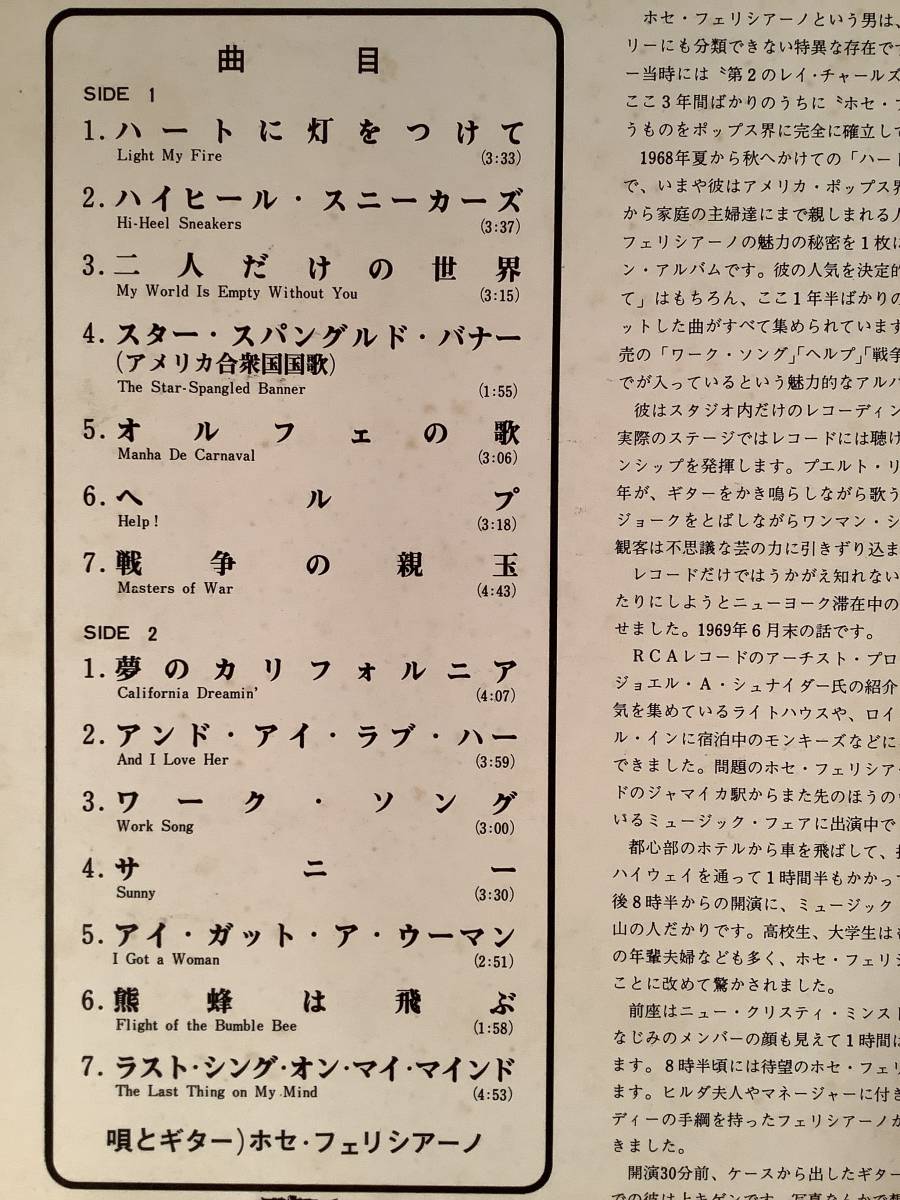 曲目
SIDE 1
1. ハートに灯をつけて
Light My Fire (3:33)
2. ハイヒール・スニーカーズ
Hi-Heel Sneakers (3:37)
3. 二人だけの世界
My World Is Empty Without You (3:15)
4. スター・スパングルド・バナー
(アメリカ合衆国国歌)
The Star-Spangled Banner (1:55)
5. オルフェの歌
Manha De Carnaval (3:06)
6. ヘルプ
Help! (3:18)
7. 戦争の親玉
Masters of War (4:43)
SIDE 2
1. 夢のカリフォルニア
California Dreamin' (4:07)
2. アンド・アイ・ラブ・ハー
And I Love Her (3:59)
3. ワーク・ソング
Work Song (3:00)
4. サニー
Sunny (3:30)
5. アイ・ガット・ア・ウーマン
I Got a Woman (2:51)
6. 熊蜂は飛ぶ
Flight of the Bumble Bee (1:58)
7. ラスト・シング・オン・マイ・マインド
The Last Thing on My Mind (4:53)
唄とギター)ホセ・フェリシアーノ
ホセ・フェリシアーノという男は、
リーにも分類できない特異な存在で
ー当時には〝第2のレイ・チャールズ
ここ3年間ばかりのうちに〝ホセ・フ
うものをポップス界に完全に確立して
1968年夏から秋へかけての「ハート
で、いまや彼はアメリカ・ポップス界
から家庭の主婦達にまで親しまれる人
フェリシアーノの魅力の秘密を1枚に
ン・アルバムです。彼の人気を決定的
て」はもちろん、ここ1年半ばかりの
ットした曲がすべて集められています
売の「ワーク・ソング」「ヘルプ」「戦争
でが入っているという魅力的なアルバ
彼はスタジオ内だけのレコーディン
実際のステージではレコードには聴け
ンシップを発揮します。プエルト・リ
年が、ギターをかき鳴らしながら歌う
ジョークをとばしながらワンマン・シ
観客は不思議な芸の力に引きずり込ま
レコードだけではうかがえ知れない
たりにしようとニューヨーク滞在中の
せました。1969年6月末の話です。
RCAレコードのアーチスト・プロ
ジョエル・A・シュナイダー氏の紹介
気を集めているライトハウスや、ロイ
ル・インに宿泊中のモンキーズなどに
できました。問題のホセ・フェリシア
ドのジャマイカ駅からまた先のほうの
いるミュージック・フェアに出演中で
都心部のホテルから車を飛ばして、
ハイウェイを通って1時間半もかかっ
後8時半からの開演に、ミュージック・
山の人だかりです。高校生、大学生は
の年輩夫婦なども多く、ホセ・フェリシ
ことに改めて驚かされました。
前座はニュー・クリスティ・ミンスト
なじみのメンバーの顔も見えて1時間
ます。8時半頃には待望のホセ・フェリ
ます。ヒルダ夫人やマネージャーに付き
ディーの手綱を持ったフェリシアーノが
きました。
開演30分前、ケースから出したギター